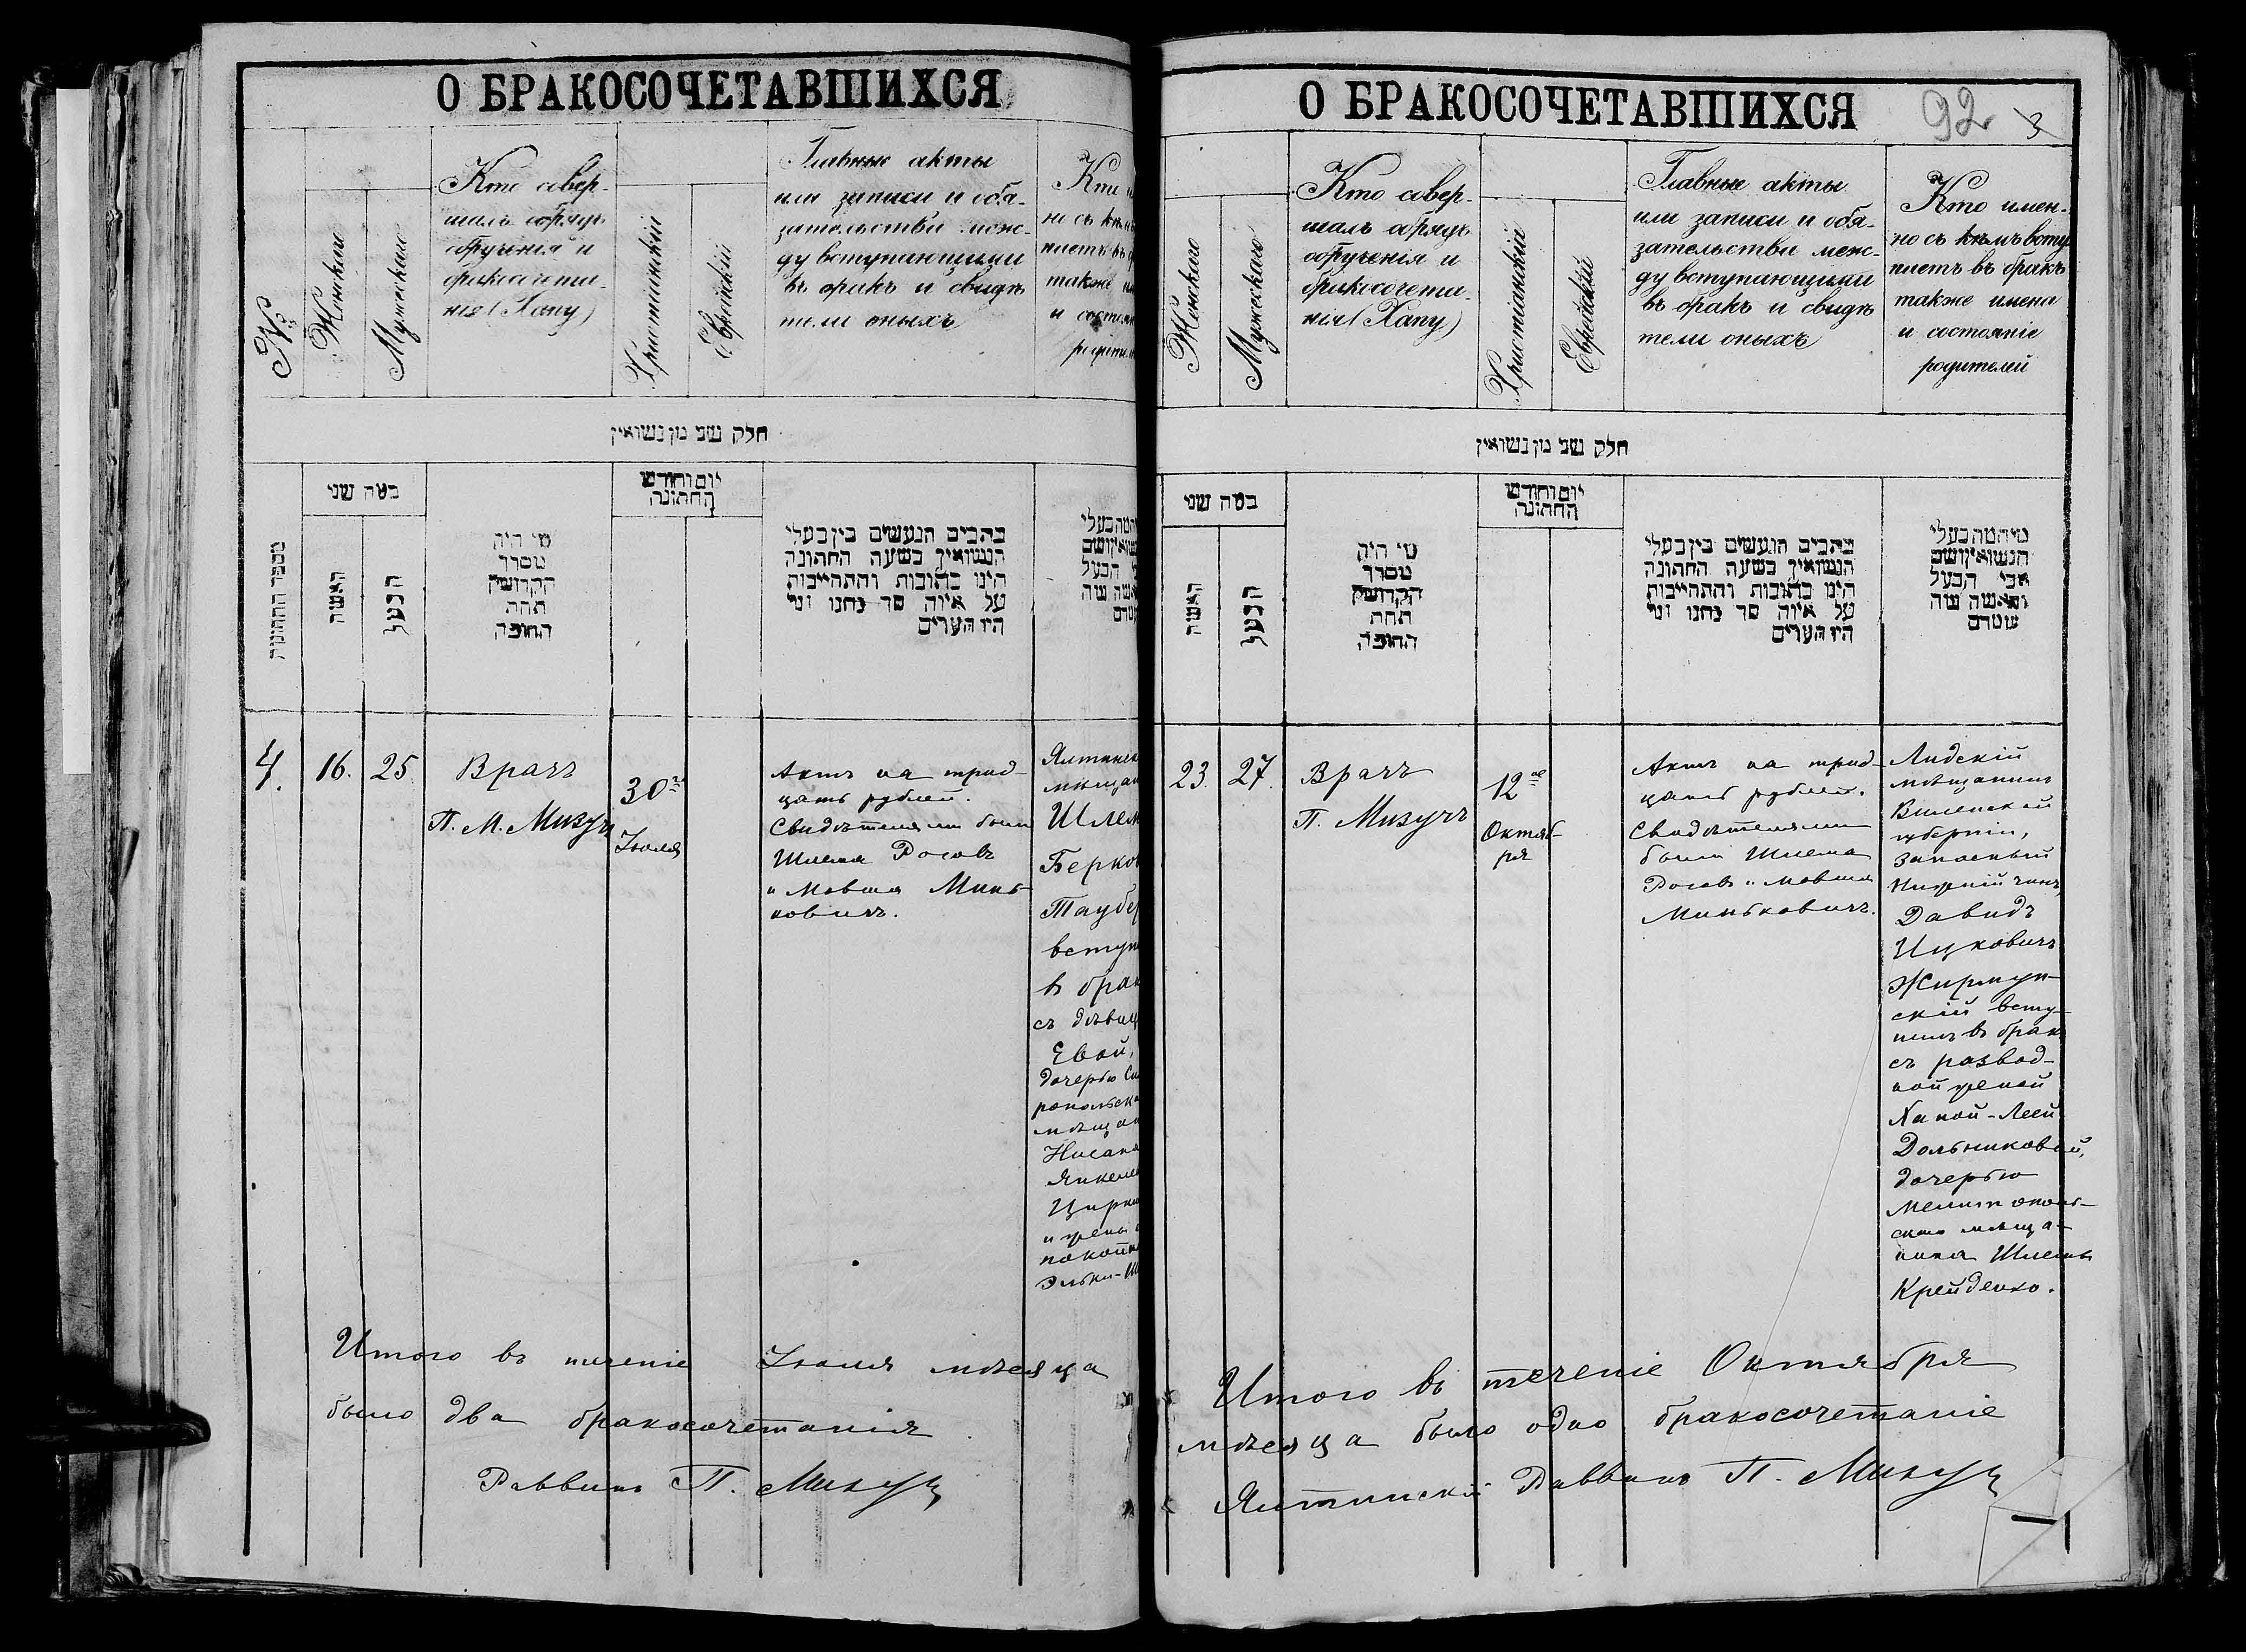 О БРАКОСОЧЕТАВШИХСЯ
№
Женскаго
Мужескаго
Кто совер-
шалъ обрядъ
обрученія и
бракосочета-
нія (Хапу)
Христіанскій
Еврейскій
Главные акты
или записи и обя-
зательства меж-
ду вступающими
въ бракъ и свидѣ
тели оныхъ
Кто
но съ
также
и
חלק שני מן נשואין
מספר החתונות
כמה שני
האשה
הבעל
מי היה
מסדר
הקדושין
תחת
החופה
יום וחודש
החתונה
כתבים הנעשים בין בעלי
הנשואין בשעה החתונה
היינו כתובות והתחייבות
על איזה סך נתנו ומי
היו העדים
4.
16.
25
Врачъ
П. М. Мизучъ
30го
Іюля
Актъ на трид-
цать рублей.
Свидѣтелями были
Шлема Росовъ
и Мовша Минь-
ковичъ.
Ялтинск
мѣщан
Шлем
Берков
Таубер
вступ
въ брак
съ дѣвиц
Евой,
дочерью
мѣщан
Нисана
Янкеле
Цирк
и жены
покойн
Эльки-Ш
Итого въ теченіе Іюля мѣсяца
было два бракосочетанія
Раввинъ П. Мизучъ
О БРАКОСОЧЕТАВШИХСЯ
92
3
Женскаго
Мужескаго
Кто совер-
шалъ обрядъ
обрученія и
бракосочета-
нія (Хапу)
Христіанскій
Еврейскій
Главные акты
или записи и обя-
зательства меж-
ду вступающими
въ бракъ и свидѣ
тели оныхъ
Кто имен-
но съ кѣмъ всту
паетъ въ бракъ
также имена
и состояніе
родителей
חלק שני מן נשואין
כמה שני
האשה
הבעל
מי היה
מסדר
הקדושין
תחת
החופה
יום וחודש
החתונה
כתבים הנעשים בין בעלי
הנשואין בשעה החתונה
היינו כתובות והתחייבות
על איזה סך נתנו ומי
היו העדים
מי המה בעלי
הנשואין ושם
אבי הבעל
והאשה
23.
27.
Врачъ
П. Мизучъ
12ое
Октяб-
ря
Актъ на трид-
цать рублей.
Свидѣтелями
были Шлема
Росовъ и Мовша
Миньковичъ.
Лидскій
мѣщанинъ
Виленской
губерніи,
запасный
нижній чинъ,
Давидъ
Ицковичъ
Жирмун-
скій всту-
пилъ въ бракъ
съ развод-
ной женой
Ханой-Леей
Дольниковой,
дочерью
Мелитополь-
скаго мѣща-
нина Шлемы
Крейденко.
Итого въ теченіе Октября
мѣсяца было одно бракосочетаніе
Ялтинскій Раввинъ П. Мизучъ